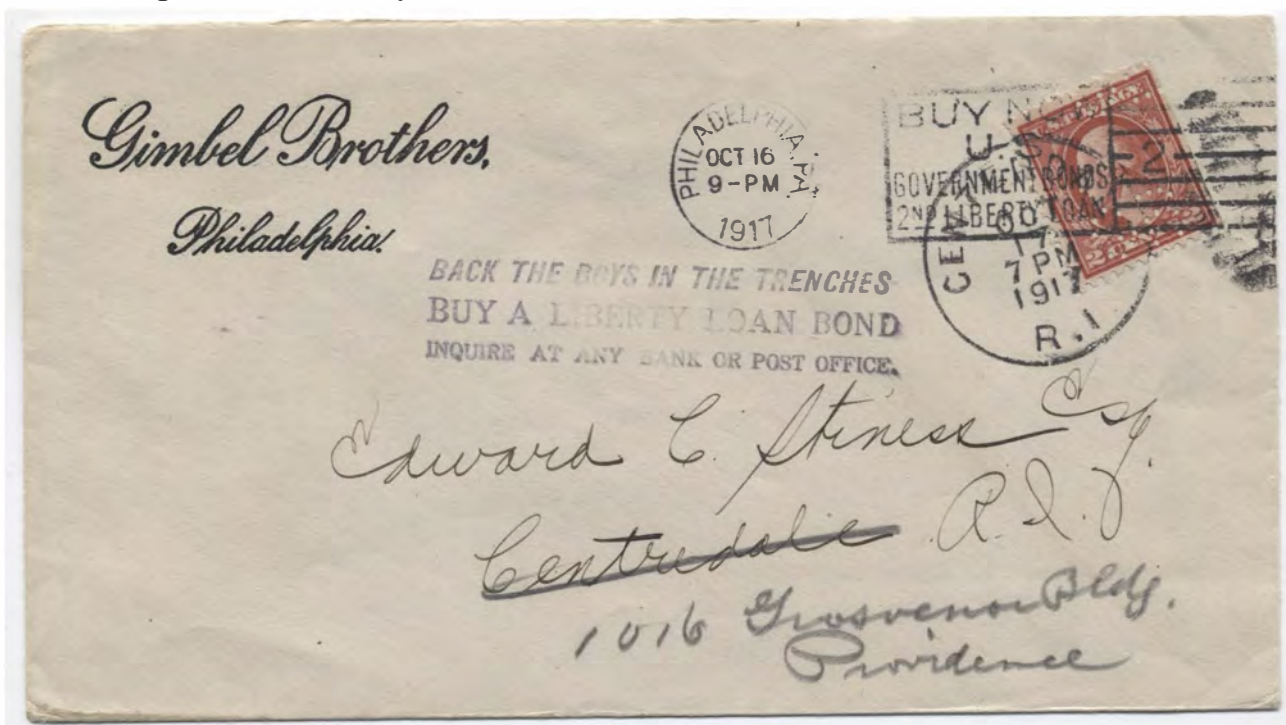 Gimbel Brothers,
Philadelphia.
PHILADELPHIA, PA.
OCT 16
9-PM
1917
BUY NOW
U.
GOVERNMENT BONDS
2ND LIBERTY LOAN
2
17
7 PM
1917
R.I.
BACK THE BOYS IN THE TRENCHES
BUY A LIBERTY LOAN BOND
INQUIRE AT ANY BANK OR POST OFFICE.
Edward C. Stiness Esq.
Centredale R.I.
1016 Grosvenor Bldg.
Providence